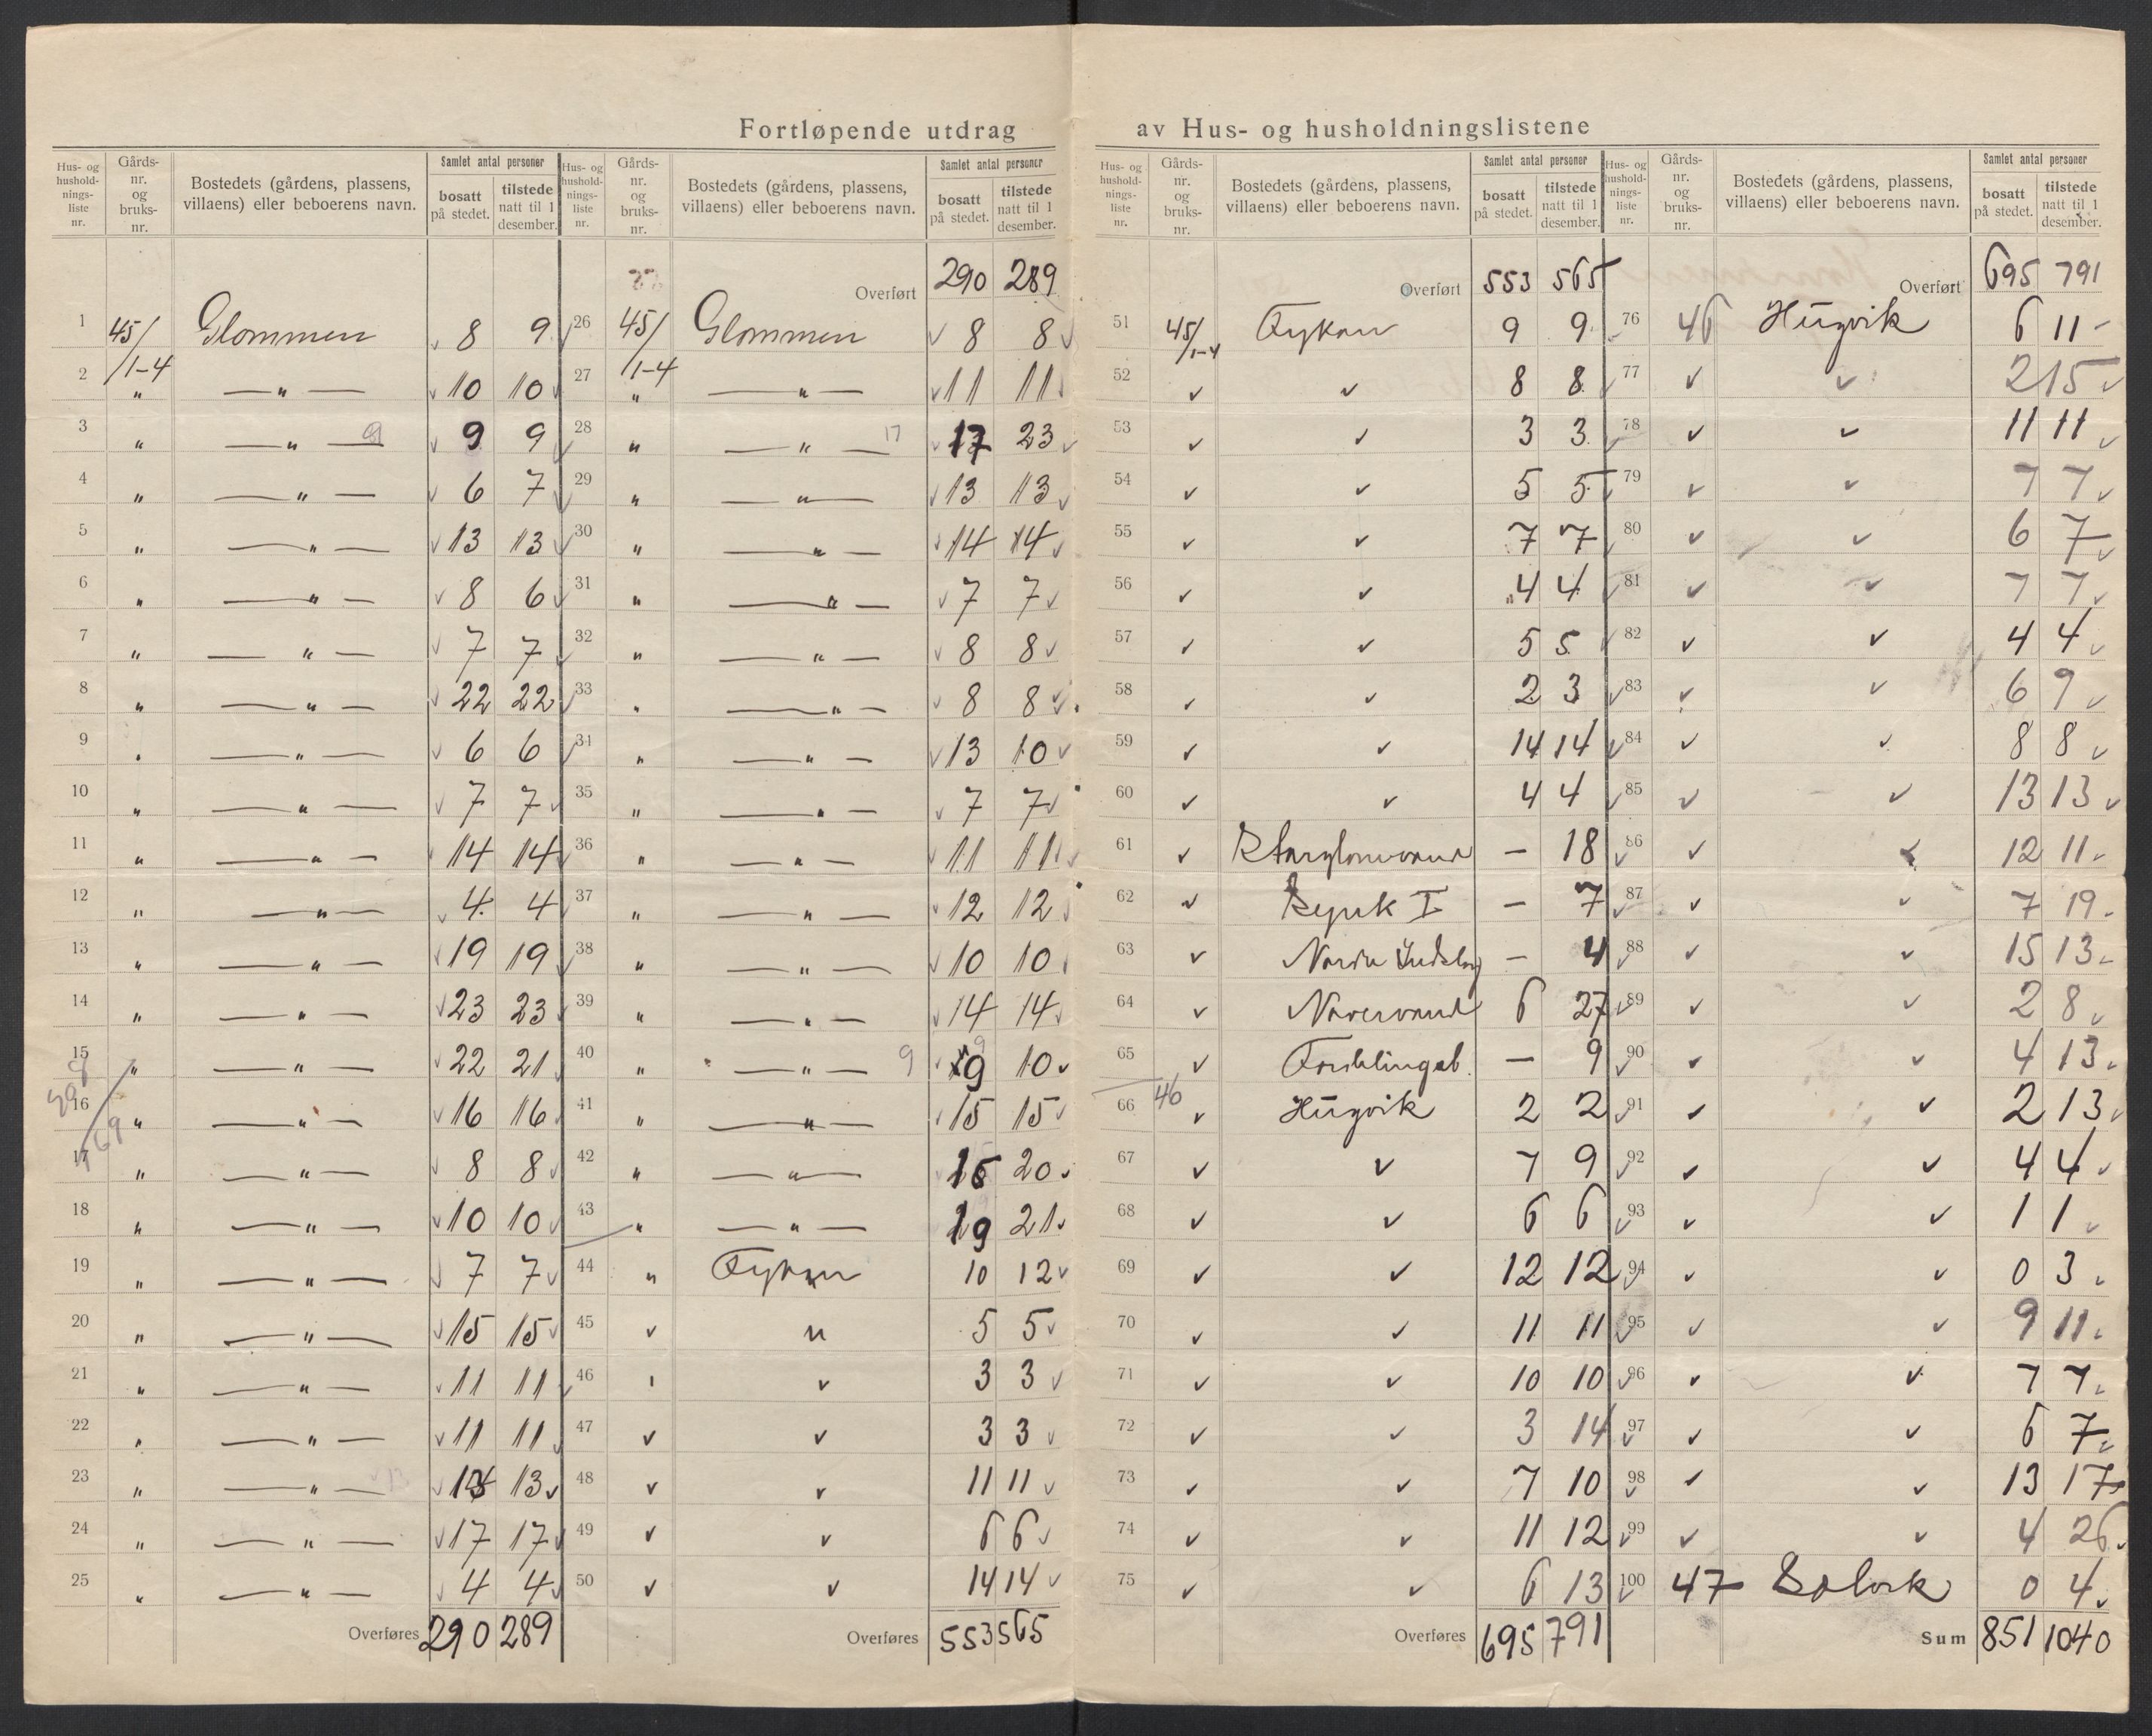 Fortløpende utdrag av Hus- og husholdningslistene
Hus- og husholdnings-liste nr. Gårds-nr. og bruks-nr. Bostedets (gårdens, plassens, villaens) eller beboerens navn. Samlet antal personer bosatt på stedet. tilstede natt til 1 desember.
1 45/1-4 Glommen 8 9
2 " — " — 10 10
3 " — " — 9 9 9
4 " — " — 6 7
5 " — " — 13 13
6 " — " — 8 6
7 " — " — 7 7
8 " — " — 22 22
9 " — " — 6 6
10 " — " — 7 7
11 " — " — 14 14
12 " — " — 4 4
13 " — " — 19 19
14 " — " — 23 23
15 " — " — 22 21
16 " — " — 16 16
17 " — " — 8 8
18 " — " — 10 10
19 " — " — 7 7
20 " — " — 15 15
21 " — " — 11 11
22 " — " — 11 11
23 " — " — 13 13 13
24 " — " — 17 17
25 " — " — 4 4
Overføres 290 289
Hus- og husholdnings-liste nr. Gårds-nr. og bruks-nr. Bostedets (gårdens, plassens, villaens) eller beboerens navn. Samlet antal personer bosatt på stedet. tilstede natt til 1 desember.
Overført 290 289
26 45/1-4 Glommen 8 8
27 " — " — 11 11
28 " — " — 17 17 23
29 " — " — 13 13
30 " — " — 14 14
31 " — " — 7 7
32 " — " — 8 8
33 " — " — 8 8
34 " — " — 13 10
35 " — " — 7 7
36 " — " — 11 11
37 " — " — 12 12
38 " — " — 10 10
39 " — " — 14 14
40 " — " — 9 9 10
41 " — " — 15 15
42 " — " — 20
43 " — " — 19 21
44 " Fykan 10 12
45 " " 5 5
46 " " 3 3
47 " " 3 3
48 " " 11 11
49 " " 6 6
50 " " 14 14
Overføres 553 565
Hus- og husholdnings-liste nr. Gårds-nr. og bruks-nr. Bostedets (gårdens, plassens, villaens) eller beboerens navn. Samlet antal personer bosatt på stedet. tilstede natt til 1 desember.
Overført 553 565
51 45/1-4 Fykan 9 9
52 " " 8 8
53 " " 3 3
54 " " 5 5
55 " " 7 7
56 " " 4 4
57 " " 5 5
58 " " 2 3
59 " " 14 14
60 " " 4 4
61 " — 18
62 " I — 7
63 " — 4
64 " Navervand 6 27
65 " Fordelingsb. — 9
66 46 " Hugvik 2 2
67 " " 7 9
68 " " 6 6
69 " " 12 12
70 " " 11 11
71 " " 10 10
72 " " 3 14
73 " " 7 10
74 " " 11 12
75 " " 6 13
Overføres 695 791
Hus- og husholdnings-liste nr. Gårds-nr. og bruks-nr. Bostedets (gårdens, plassens, villaens) eller beboerens navn. Samlet antal personer bosatt på stedet. tilstede natt til 1 desember.
Overført 695 791
76 46 Hugvik 6 11
77 " " 2 15
78 " " 11 11
79 " " 7 7
80 " " 6 7
81 " " 7 7
82 " " 4 4
83 " " 6 9
84 " " 8 8
85 " " 13 13
86 " " 12 11
87 " " 7 19
88 " " 15 13
89 " " 2 8
90 " " 4 13
91 " " 2 13
92 " " 4 4
93 " " 1 1
94 " " 0 3
95 " " 9 11
96 " " 7 7
97 " " 6 7
98 " " 13 17
99 " " 4 26
100 47 0 4
Sum 851 1040